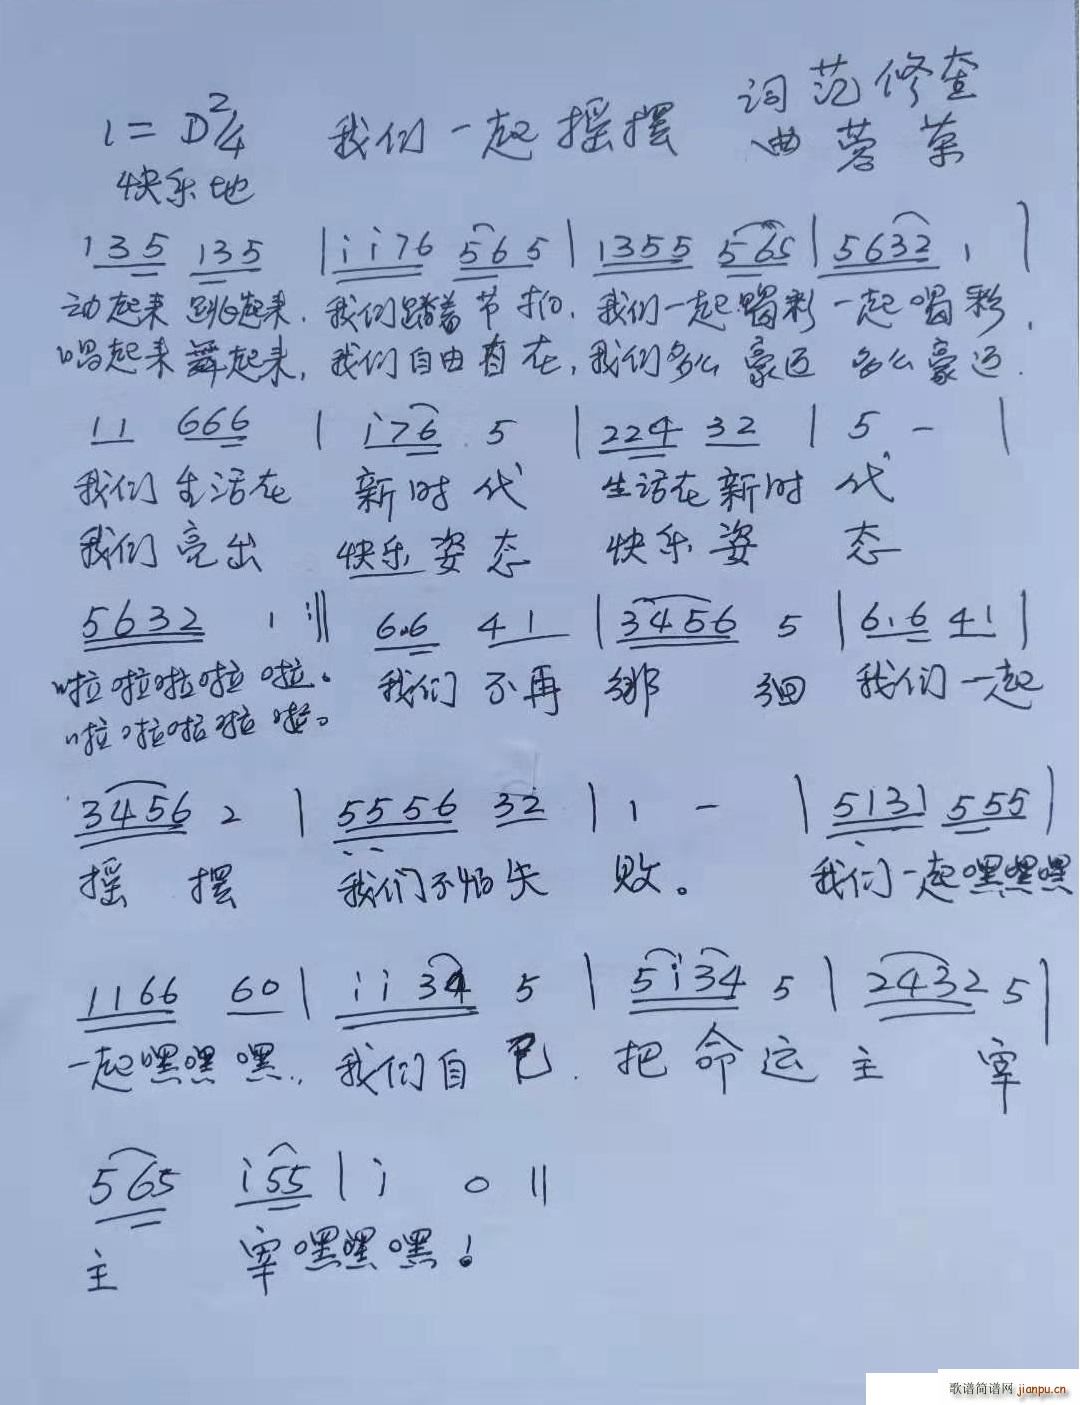 词 范修奎
1=D2/4 我们一起摇摆 曲 蓉蓉
快乐地
135 135 | i i 7 6 5 6 5 | 1355 565 | 5632 1 |
动起来 跳起来. 我们踏着节拍. 我们一起喝彩 一起喝彩.
唱起来舞起来, 我们自由自在, 我们多么豪迈 多么豪迈.
11 666 | i76 5 | 224 32 | 5 - |
我们 生活在 新时代 生活在新时 代
我们 亮出 快乐姿态 快乐姿 态
5632 1 :|| 6.6 41 | 3456 5 | 6.6 41 |
啦啦啦啦 啦。 我们 不再 绑 捆 我们一起
啦啦啦啦 啦。
3456 2 | 5556 32 | 1 - | 5131 555 |
摇 摆 我们不怕失 败。 我们一起嘿嘿嘿
1166 60 | i i 34 5 | 5 i 34 5 | 2432 5 |
一起嘿嘿 嘿. 我们自 己. 把命运 主 宰
565 i55 | i 0 ||
主 宰嘿嘿嘿!
歌谱简谱网 jianpu.cn